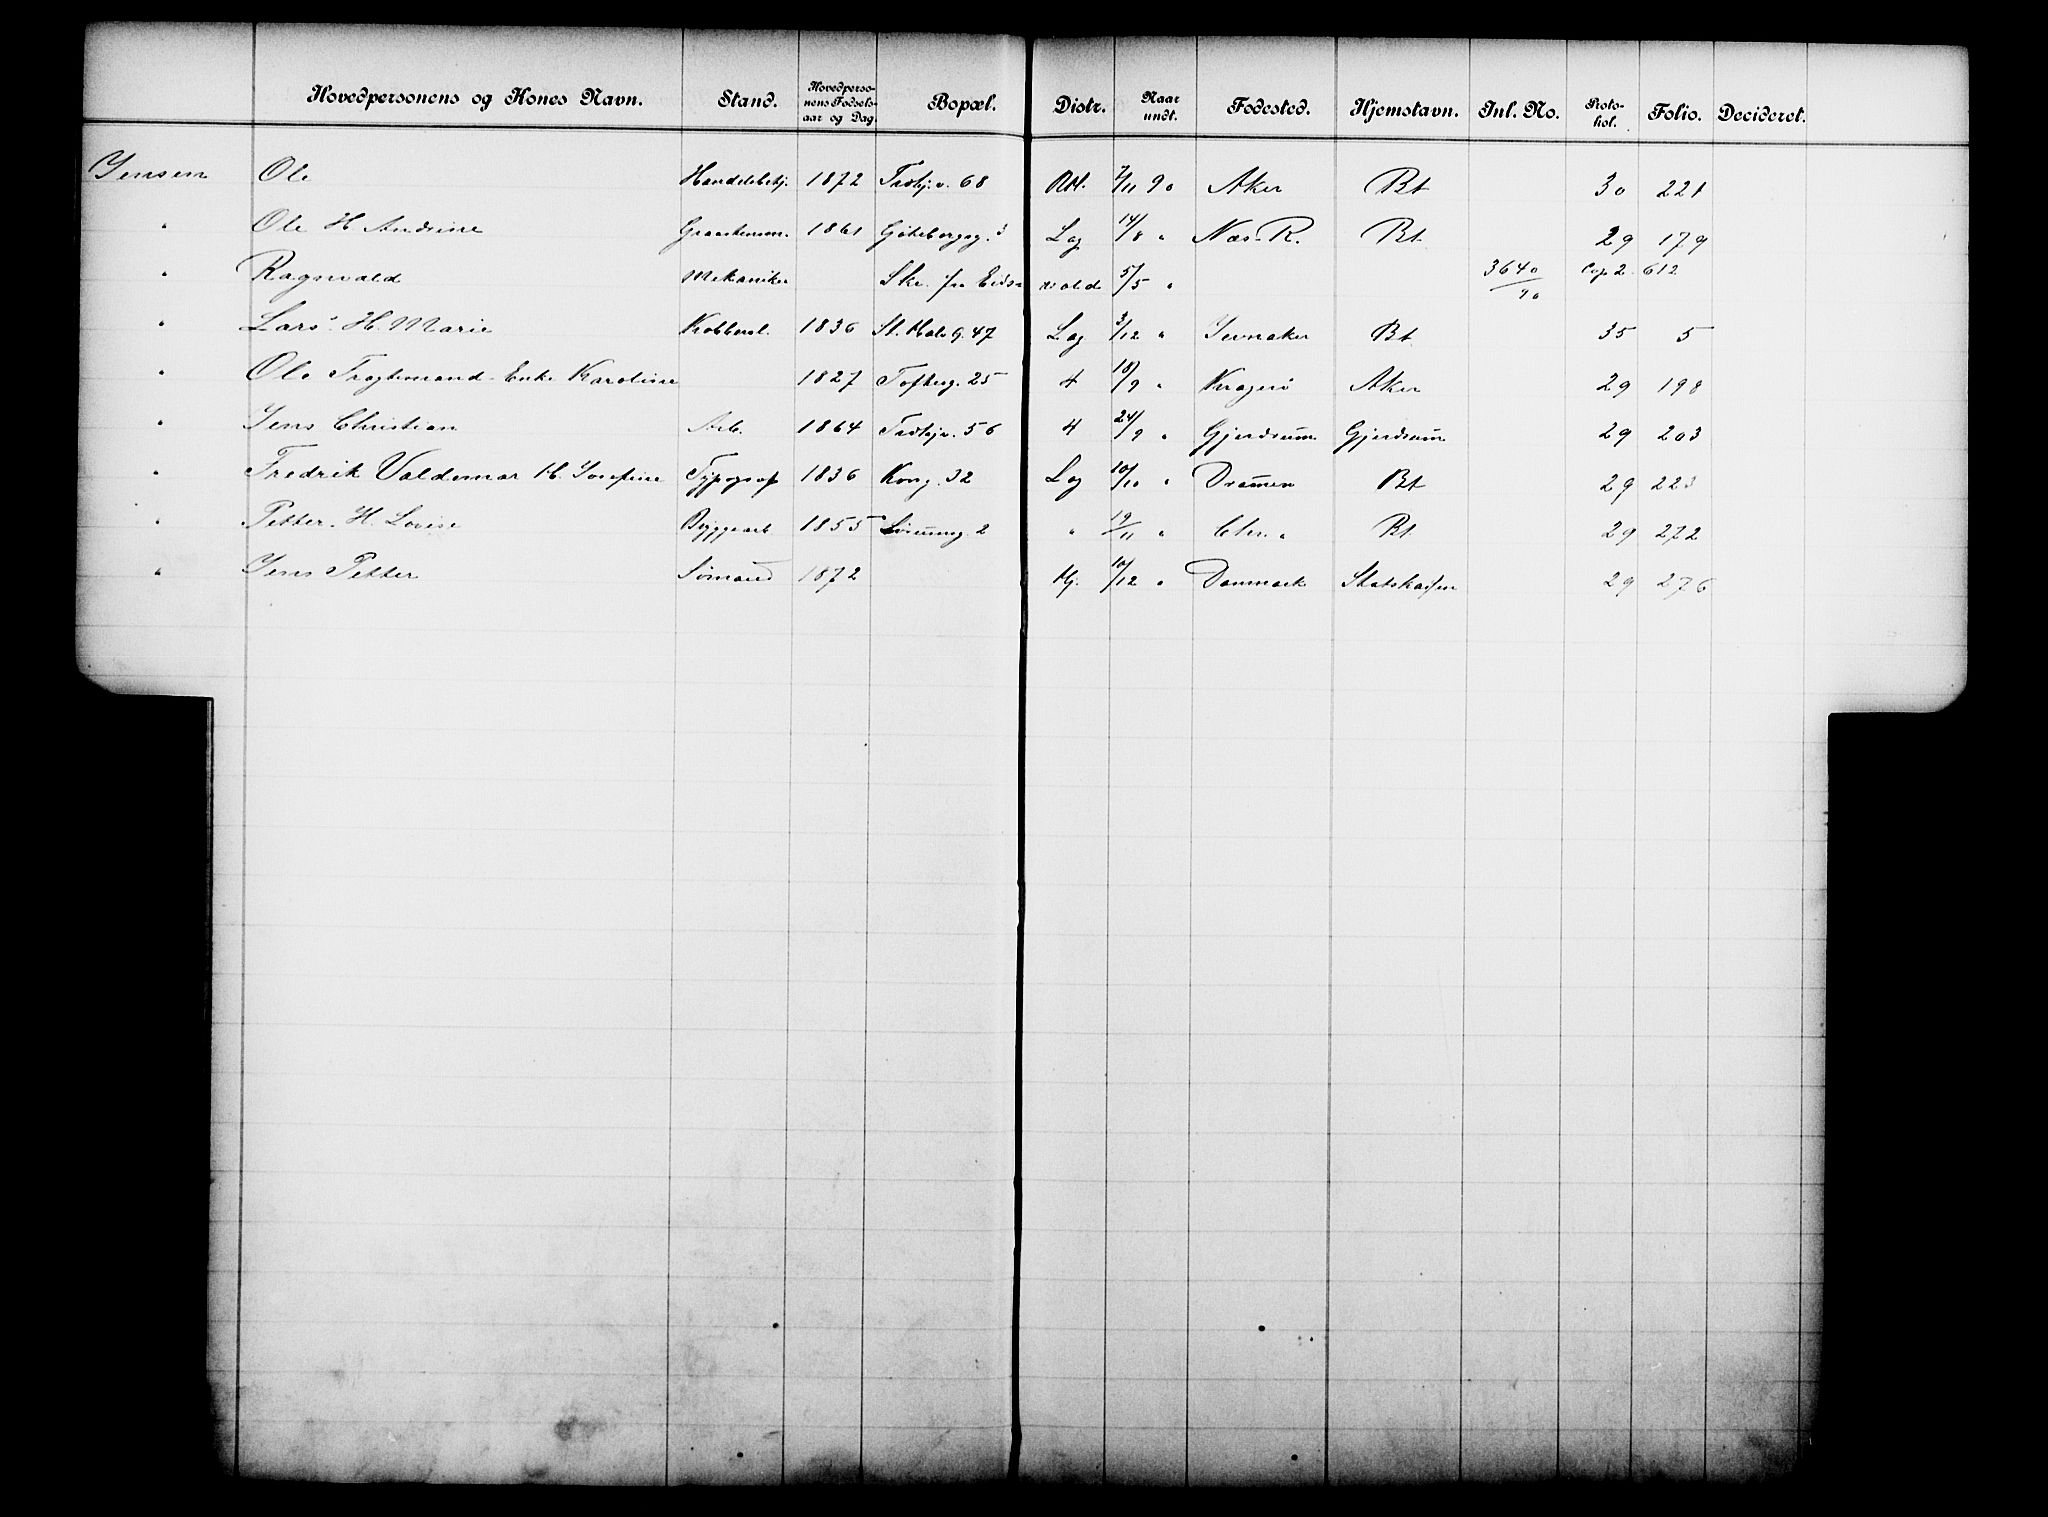 Hovedpersonens og Kones Navn. Stand. Hovedpersonens Fødselsaar og Dag. Bopæl. Distr. Naar undt. Fødested. Hjemstavn. Inl. No. Protokol. Folio. Decideret.
Jensen Ole Handelsbetj. 1872 Trdhj.v. 68 7/11 90 Aker Bt 30 221
" Ole H. Andrine 1861 Göteborgg. 3 Lag 14/8 " Næs. R. Bt. 29 179
" Ragnvald Mekaniker Skr. fra Eidsvold 5/5 " 3640/90 Cop. 2 612
" Lars H. Marie Kobbersl. 1836 St. Halv.g. 47 Lag 3/12 " Jevnaker Bt 35 5
" Ole Fragtemand Enke Karoline 1827 Tofteg. 25 4 18/9 " Kragerö Aker 29 198
" Jens Christian Arb. 1864 Trdhjv. 56 4 24/9 " Gjerdrum Gjerdrum 29 203
" Fredrik Valdemar H. Josefine Typograf 1836 Kong. 32 Lag 10/10 " Dramen Bt 29 223
" Petter H. Lovise Byggearb. 1855 Sörumg. 2 " 19/11 " Chr.a Bt. 29 272
" Jens Petter Sömand 1872 Hj. 10/12 " Danmark Statskassen 29 276